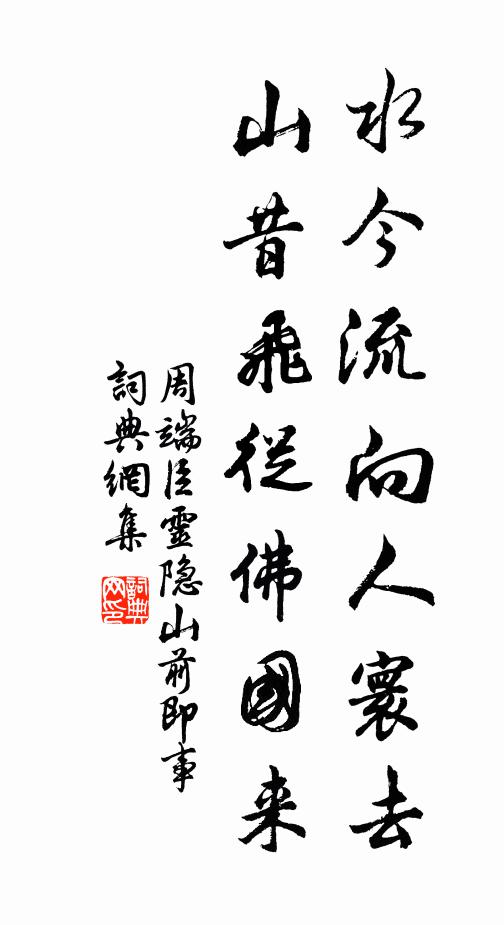 水今流向人寰去
山昔飛從佛國来
周端臣靈隐山前即事
詞典網集
詞典网印